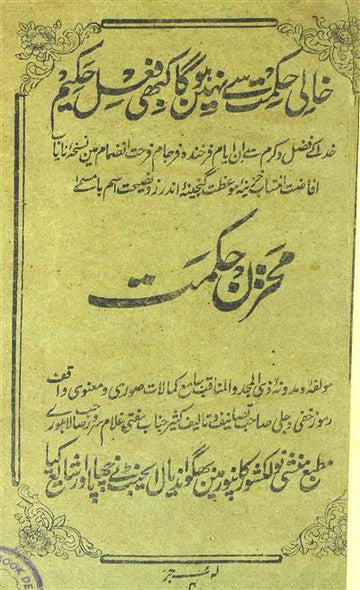 خالی حکمت سے نہیں ہوگا کبھی فعل حکیم
خدا کے فضل و کرم سے ان ایام فرخندہ فرجام فرحت انضمام مین نسخہ نایاب
افاضت انتساب خزینہ موعظت گنجینہ اندرز و نصیحت اسم بامسمے
مخزن حکمت
مولفہ و مدونہ ذی المجد والمناقب جامع کمالات صوری و معنوی واقف
رموز خفی و جلی صاحب تصانیف و تالیف کثیر جناب مفتی غلام سرور صاحب لاہوری
مطبع منشی نولکشور کانپور مین بھگوندیال ایجنٹ نے چھاپا اور شایع کیا
BOOK DE